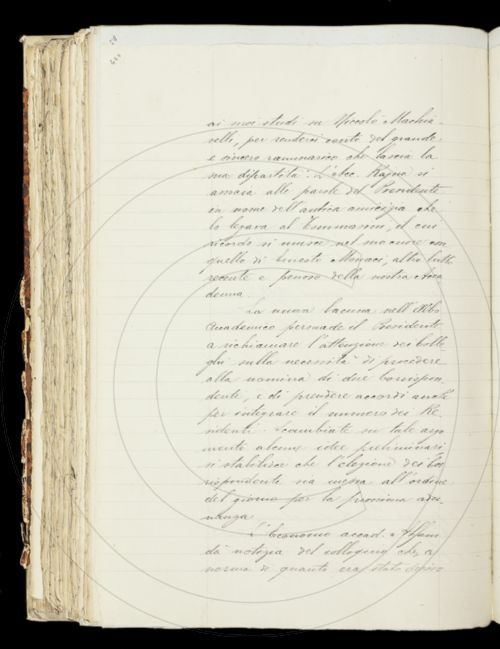 ai suoi studi su Niccolò Machia-
velli, per renderci conto del grande
e sincero rammarico che lascia la
sua dipartita. L'Acc. Rajna si
associa alle parole del Presidente
in nome dell'antica amicizia che
lo legava al Tommasini, il cui
ricordo si unisce nel suo cuore con
quello di Ernesto Monaci, altro lutto
recente e penoso della nostra Acca
demia.
La nuova lacuna nell'Albo
Accademico persuade il Presidente
a richiamare l'attenzione dei colle
ghi sulla necessità di procedere
alla nomina di due Corrispon
dente, e di prendere accordi anche
per integrare il numero dei Re
sidenti. Scambiate su tale argo
mento alcune idee preliminari
si stabilisce che l'elezione dei Cor
rispondente sia messa all'ordine
del giorno per la prossima adu-
nanza.
L'Economo accad.
dà notizia del che, a
norma di quanto era stato deciso